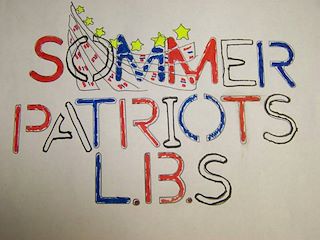 SOMMER
PATRIOTS
L.B.S